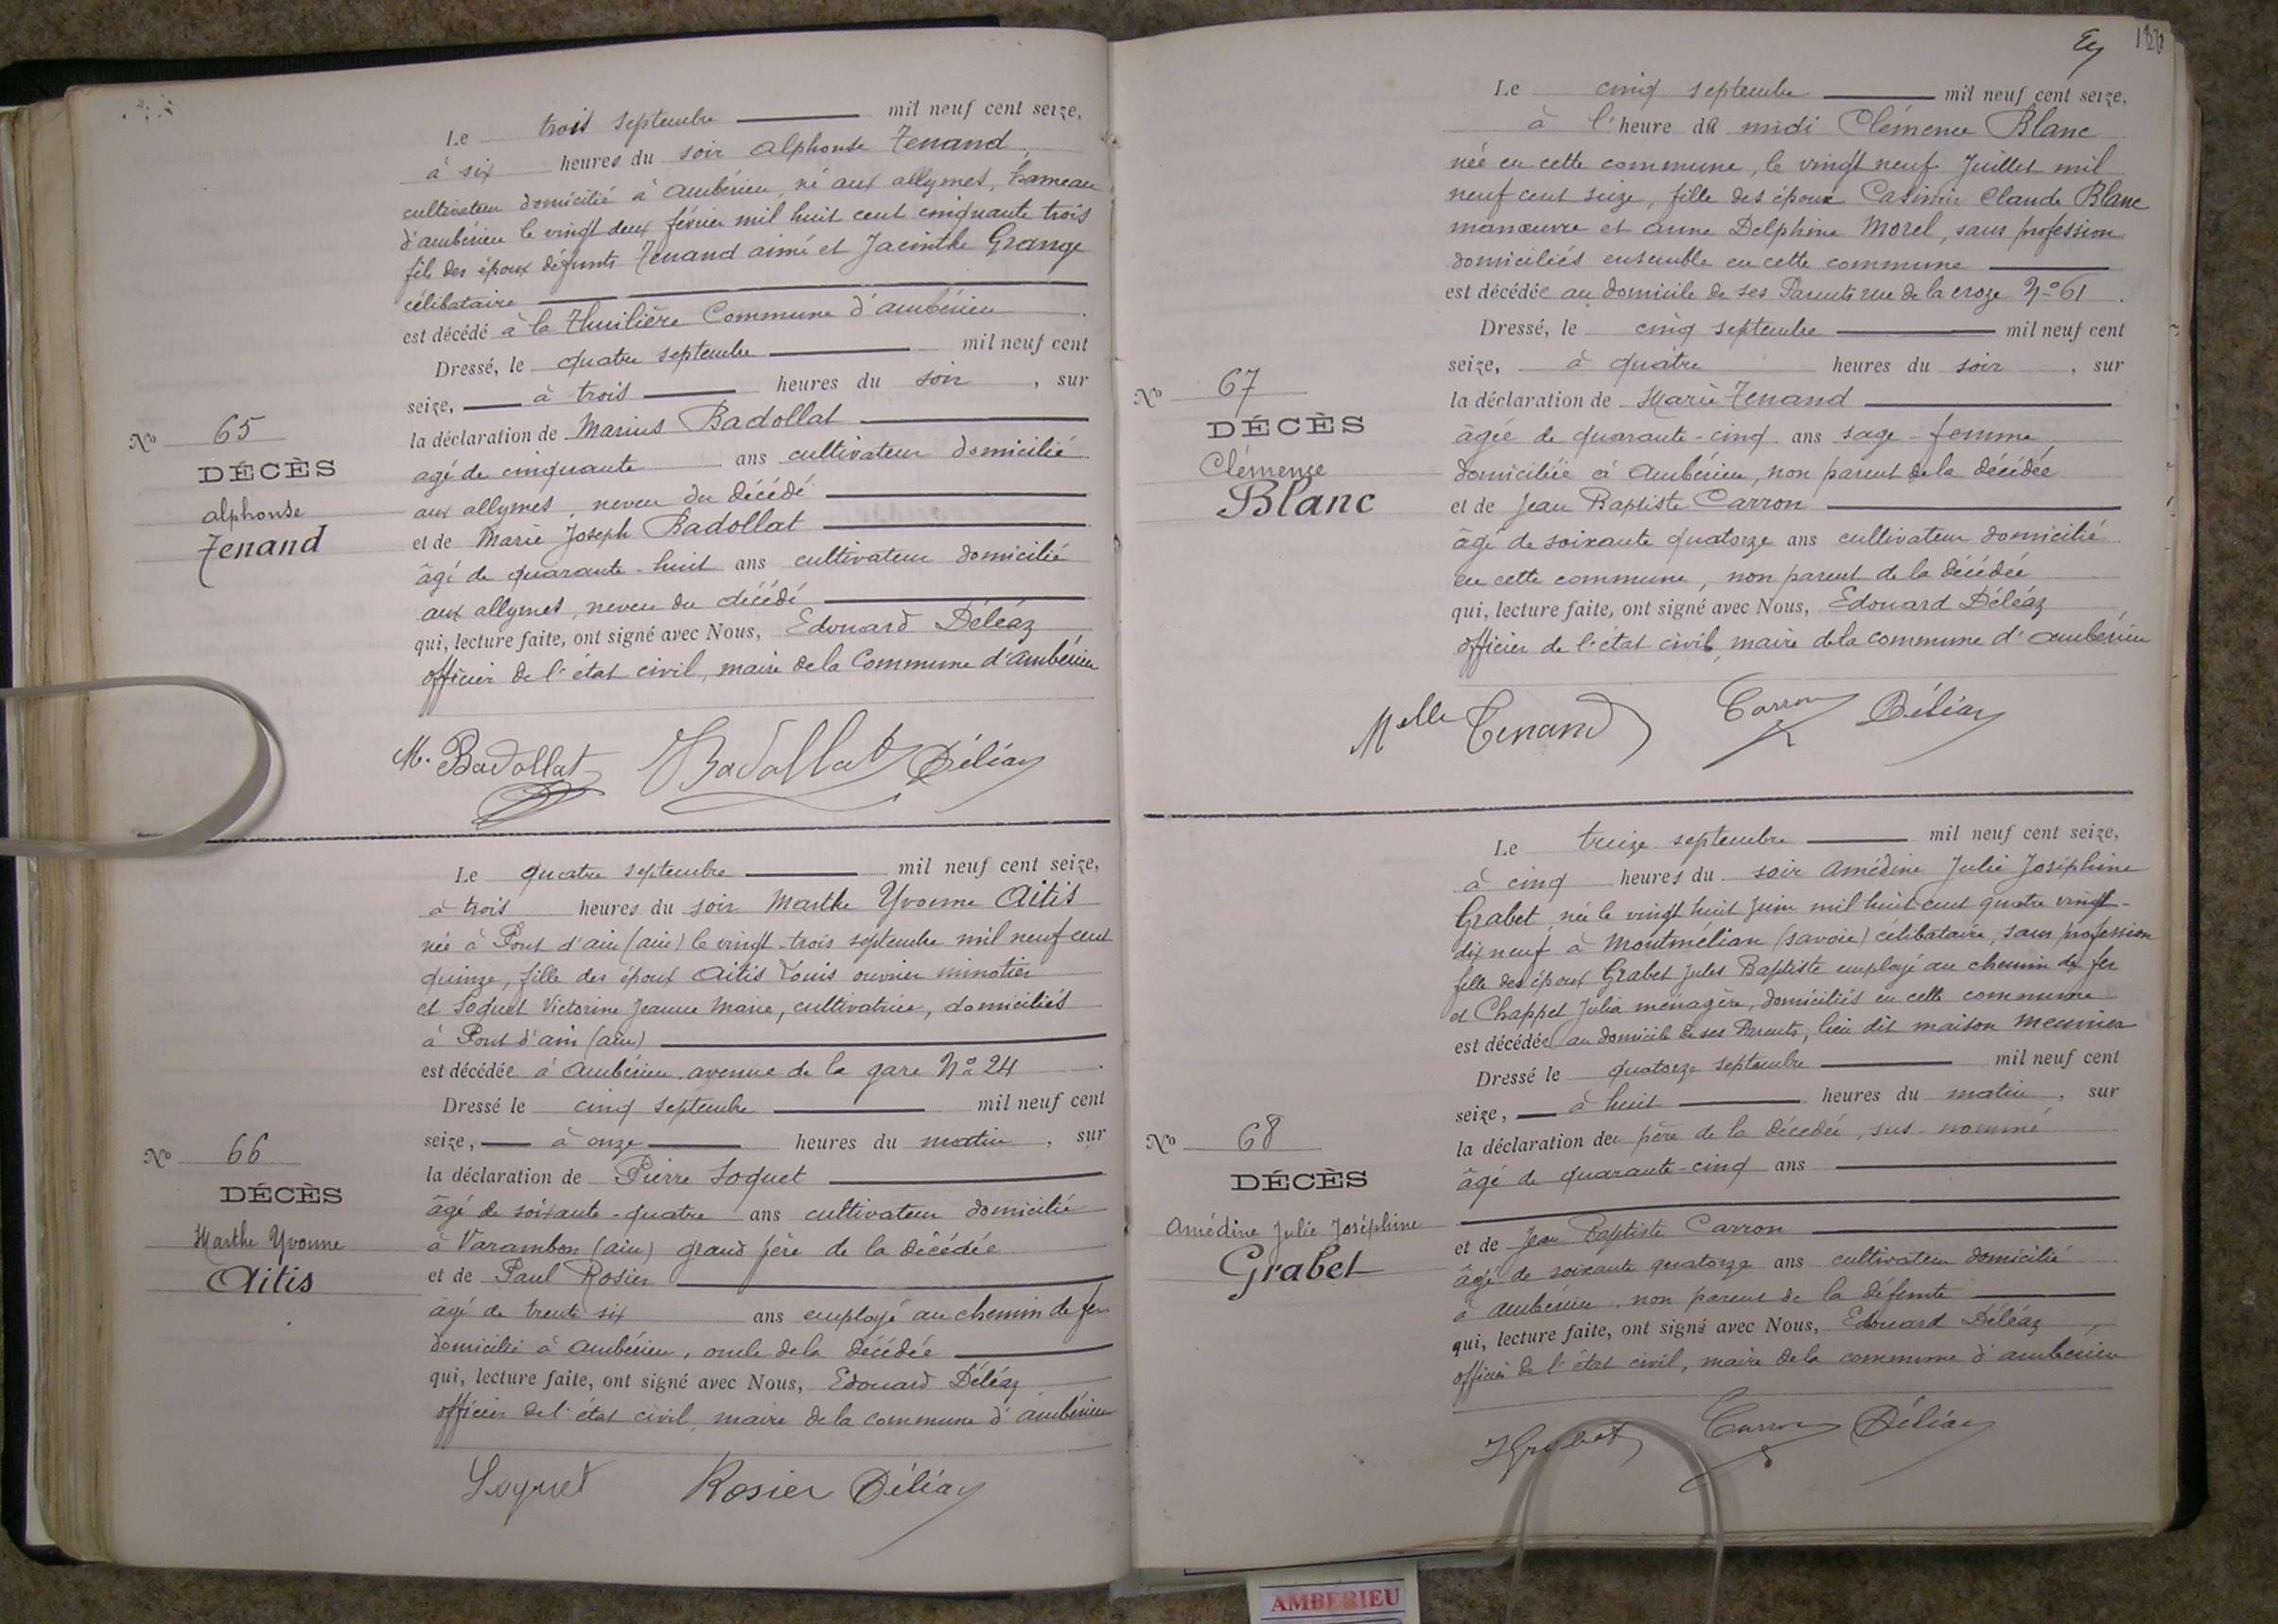 Le trois septembre mil neuf cent seize,
à six heures du soir Alphonse Tenand,
cultivateur domicilié à Ambérieu, né aux allymes, hameau
d'ambérieu le vingt deux février mil huit cent cinquante trois
fils des époux défunts Tenand aimé et Jacinthe Grange
célibataire
est décédé à la Thuilière Commune d'ambérieu
Dressé, le quatre septembre mil neuf cent
seize, à trois heures du soir, sur
la déclaration de Marius Badollat
agé de cinquante ans cultivateur domicilié
aux allymes, neveu du décédé
et de Marie Joseph Badollat
âgé de quarante-huit ans cultivateur domicilié
aux allymes, neveu du décédé
qui, lecture faite, ont signé avec Nous, Edouard Déléaz
officier de l'état civil, maire de la Commune d'Ambérieu
No 65
DÉCÈS
alphonse
Tenand
M. Badollat Badollat Déléaz
Le quatre septembre mil neuf cent seize,
à trois heures du soir Marthe Yvonne Aitis
née à Pont d'ain (ain) le vingt-trois septembre mil neuf cent
quinze, fille des époux Aitis Louis ouvrier minotier
et Soquet Victorine Jeanne Marie, cultivatrice, domiciliés
à Pont d'ain (ain)
est décédée à Ambérieu avenue de la gare No 24
Dressé le cinq septembre mil neuf cent
seize, à onze heures du matin, sur
la déclaration de Pierre Soquet
âgé de soixante-quatre ans cultivateur domicilié
à Varambon (ain) grand père de la décédée
et de Paul Rosier
âgé de trente six ans employé au chemin de fer
domicilié à Ambérieu, oncle de la décédée
qui, lecture faite, ont signé avec Nous, Edouard Déléaz
officier de l'état civil, maire de la commune d'ambérieu
No 66
DÉCÈS
Marthe Yvonne
Aitis
Soquet Rosier Déléaz
126
Le cinq septembre mil neuf cent seize,
à l'heure de midi Clémence Blanc
née en cette commune, le vingt neuf Juillet mil
neuf cent seize, fille des époux Casimir Claude Blanc
manœuvre et Anne Delphine Morel, sans profession
domiciliés ensemble en cette commune
est décédée au domicile de ses Parents rue de la croze No 61.
Dressé, le cinq septembre mil neuf cent
seize, à quatre heures du soir, sur
la déclaration de Marie Tenand
âgée de quarante-cinq ans sage-femme
domiciliée à Ambérieu, non parent de la décédée
et de Jean Baptiste Carron
âgé de soixante quatorze ans cultivateur domicilié
en cette commune, non parent de la décédée
qui, lecture faite, ont signé avec Nous, Edouard Déléaz,
officier de l'état civil, maire de la commune d'ambérieu
No 67
DÉCÈS
Clémence
Blanc
Melle Tenand Carron Déléaz
Le treize septembre mil neuf cent seize,
à cinq heures du soir Amédine Julie Joséphine
Grabet, née le vingt huit Juin mil huit cent quatre vingt-
dix neuf à Montmélian (savoie) célibataire, sans profession
fille des époux Grabet Jules Baptiste employé au chemin de fer
et Chappet Julia ménagère, domiciliés en cette commune
est décédée au domicile de ses Parents, lieu dit maison Meunier
Dressé le quatorze septembre mil neuf cent
seize, à huit heures du matin, sur
la déclaration du père de la décédée, sus-nommé
âgé de quarante-cinq ans
et de Jean Baptiste Carron
âgé de soixante quatorze ans cultivateur domicilié
à Ambérieu, non parent de la défunte
qui, lecture faite, ont signé avec Nous, Edouard Déléaz,
officier de l'état civil, maire de la commune d'ambérieu
No 68
DÉCÈS
Amédine Julie Joséphine
Grabet
JGrabet Carron Déléaz
AMBERIEU